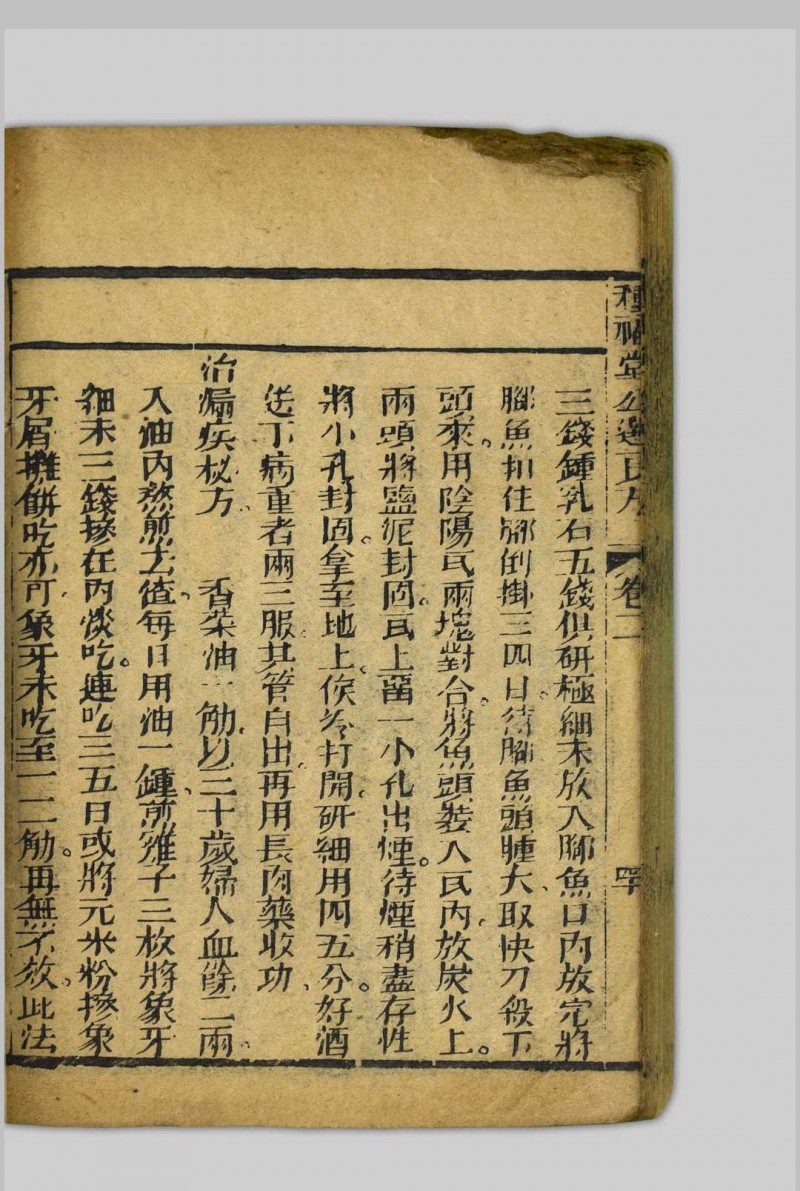 種福堂公選良方　卷二
三錢鍾乳石五錢俱研極細末放入腳魚口內放完將
腳魚扣住腳倒掛三四日待腳魚頭腫大、取快刀殺下
頭來。用陰陽瓦兩塊對合。將魚頭裝入瓦內、放炭火上。
兩頭將鹽泥封固。瓦上留一小孔出煙。待煙稍盡存性
將小孔封固。拿至地上。俟冷打開。研細用四五分。好酒
送下病重者兩三服。其管自出、再用長肉藥收功、
治漏疾秘方。　香菜油一觔。以三十歲婦人血餘二兩。
入油內熬煎去渣。每日用油一鍾、煎雞子三枚將象牙
細末三錢摻在內淡吃。連吃三五日或將元米粉摻象
牙屑攤餅吃亦可、象牙末吃至一二觔。再無不效。此法